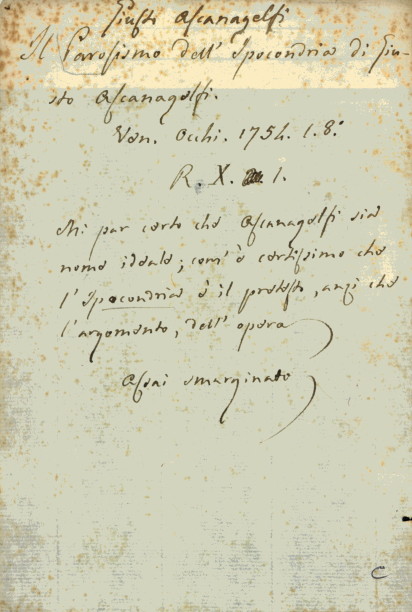 Giusto Ascanagelfi
Il Parosismo dell' Ipocondria di Giu-
sto Ascanagelfi.
Ven. Occhi. 1754. 1. 8.°
R. X. 1.
Mi par certo che Ascanagelfi sia
nome ideale; com' è certissimo che
l'Ipocondria è il pretesto, anzi che
l'argomento, dell' opera
Assai smarginato
C